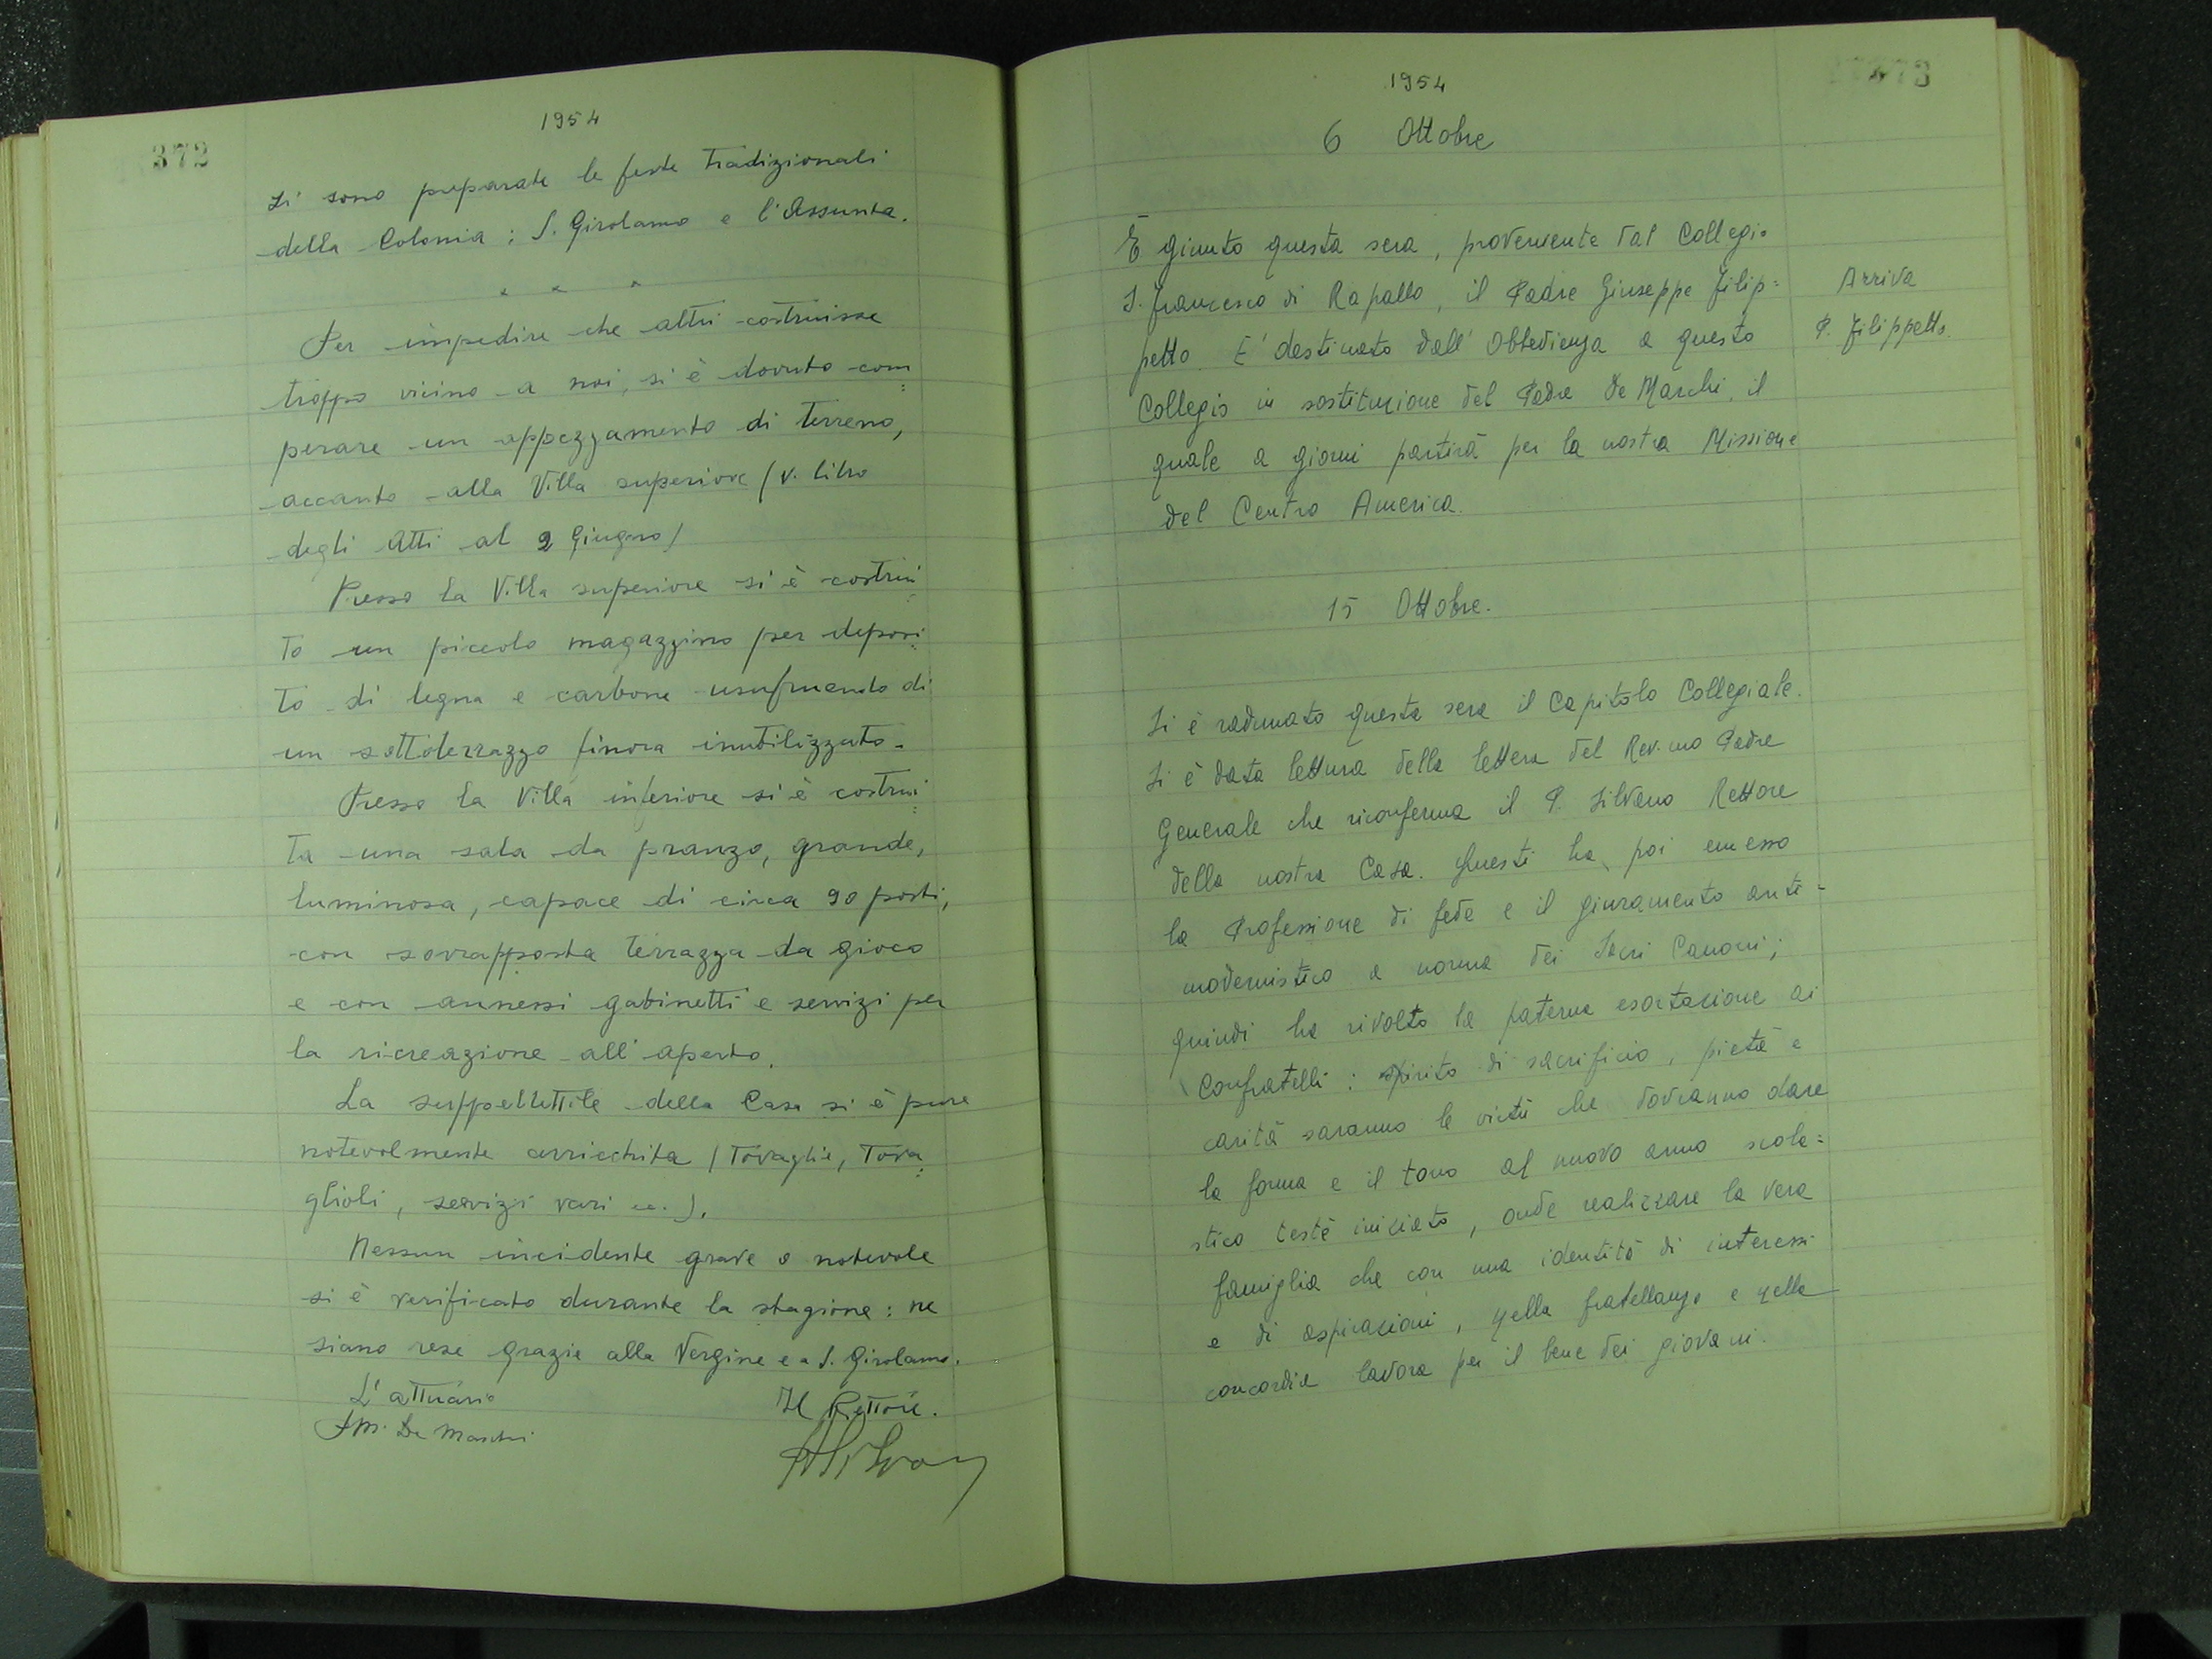 372
1954
Si sono preparate le feste tradizionali
della Colonia : S. Girolamo e l'Assunta.
* * *
Per impedire che altri costruisse
troppo vicino a noi, si è dovuto com=
perare un appezzamento di terreno,
accanto alla Villa superiore (v. libro
degli Atti al 2 Giugno)
Presso la Villa superiore si è costrui=
to un piccolo magazzino per deposi=
to di legna e carbone usufruendo di
un sottoterrazzo finora inutilizzato.
Presso la Villa inferiore si è costrui=
ta una sala da pranzo, grande,
luminosa, capace di circa 90 posti,
con sovrapposta terrazza da gioco
e con annessi gabinetti e servizi per
la ricreazione all'aperto.
La suppellettile della Casa si è pure
notevolmente arricchita (tovaglie, tova=
glioli, servizi vari ec.).
Nessun incidente grave o notevole
si è verificato durante la stagione : ne
siano rese grazie alla Vergine e a S. Girolamo.
L'attuario Il Rettore.
De Marchi
73
1954
6 Ottobre
È giunto questa sera, proveniente dal Collegio
S. Francesco di Rapallo, il Padre Giuseppe Filip=
petto. E' destinato dall' Obbedienza a questo
Collegio in sostituzione del Padre De Marchi, il
quale a giorni partirà per la nostra Missione
del Centro America.
Arriva
P. Filippetto
15 Ottobre.
Si è radunato questa sera il Capitolo Collegiale.
Si è data lettura della lettera del Rev.mo Padre
Generale che riconferma il P. Silvano Rettore
della nostra Casa. Questi ha poi emesso
la Professione di fede e il giuramento anti=
modernistico a norma dei Sacri Canoni ;
quindi ha rivolto la paterna esortazione ai
Confratelli : spirito di sacrificio, pietà e
carità saranno le virtù che dovranno dare
la forma e il tono al nuovo anno scola=
stico testè iniziato, onde realizzare la vera
famiglia che con una identità di interessi
e di aspirazioni, nella fratellanza e nella
concordia lavora per il bene dei giovani.